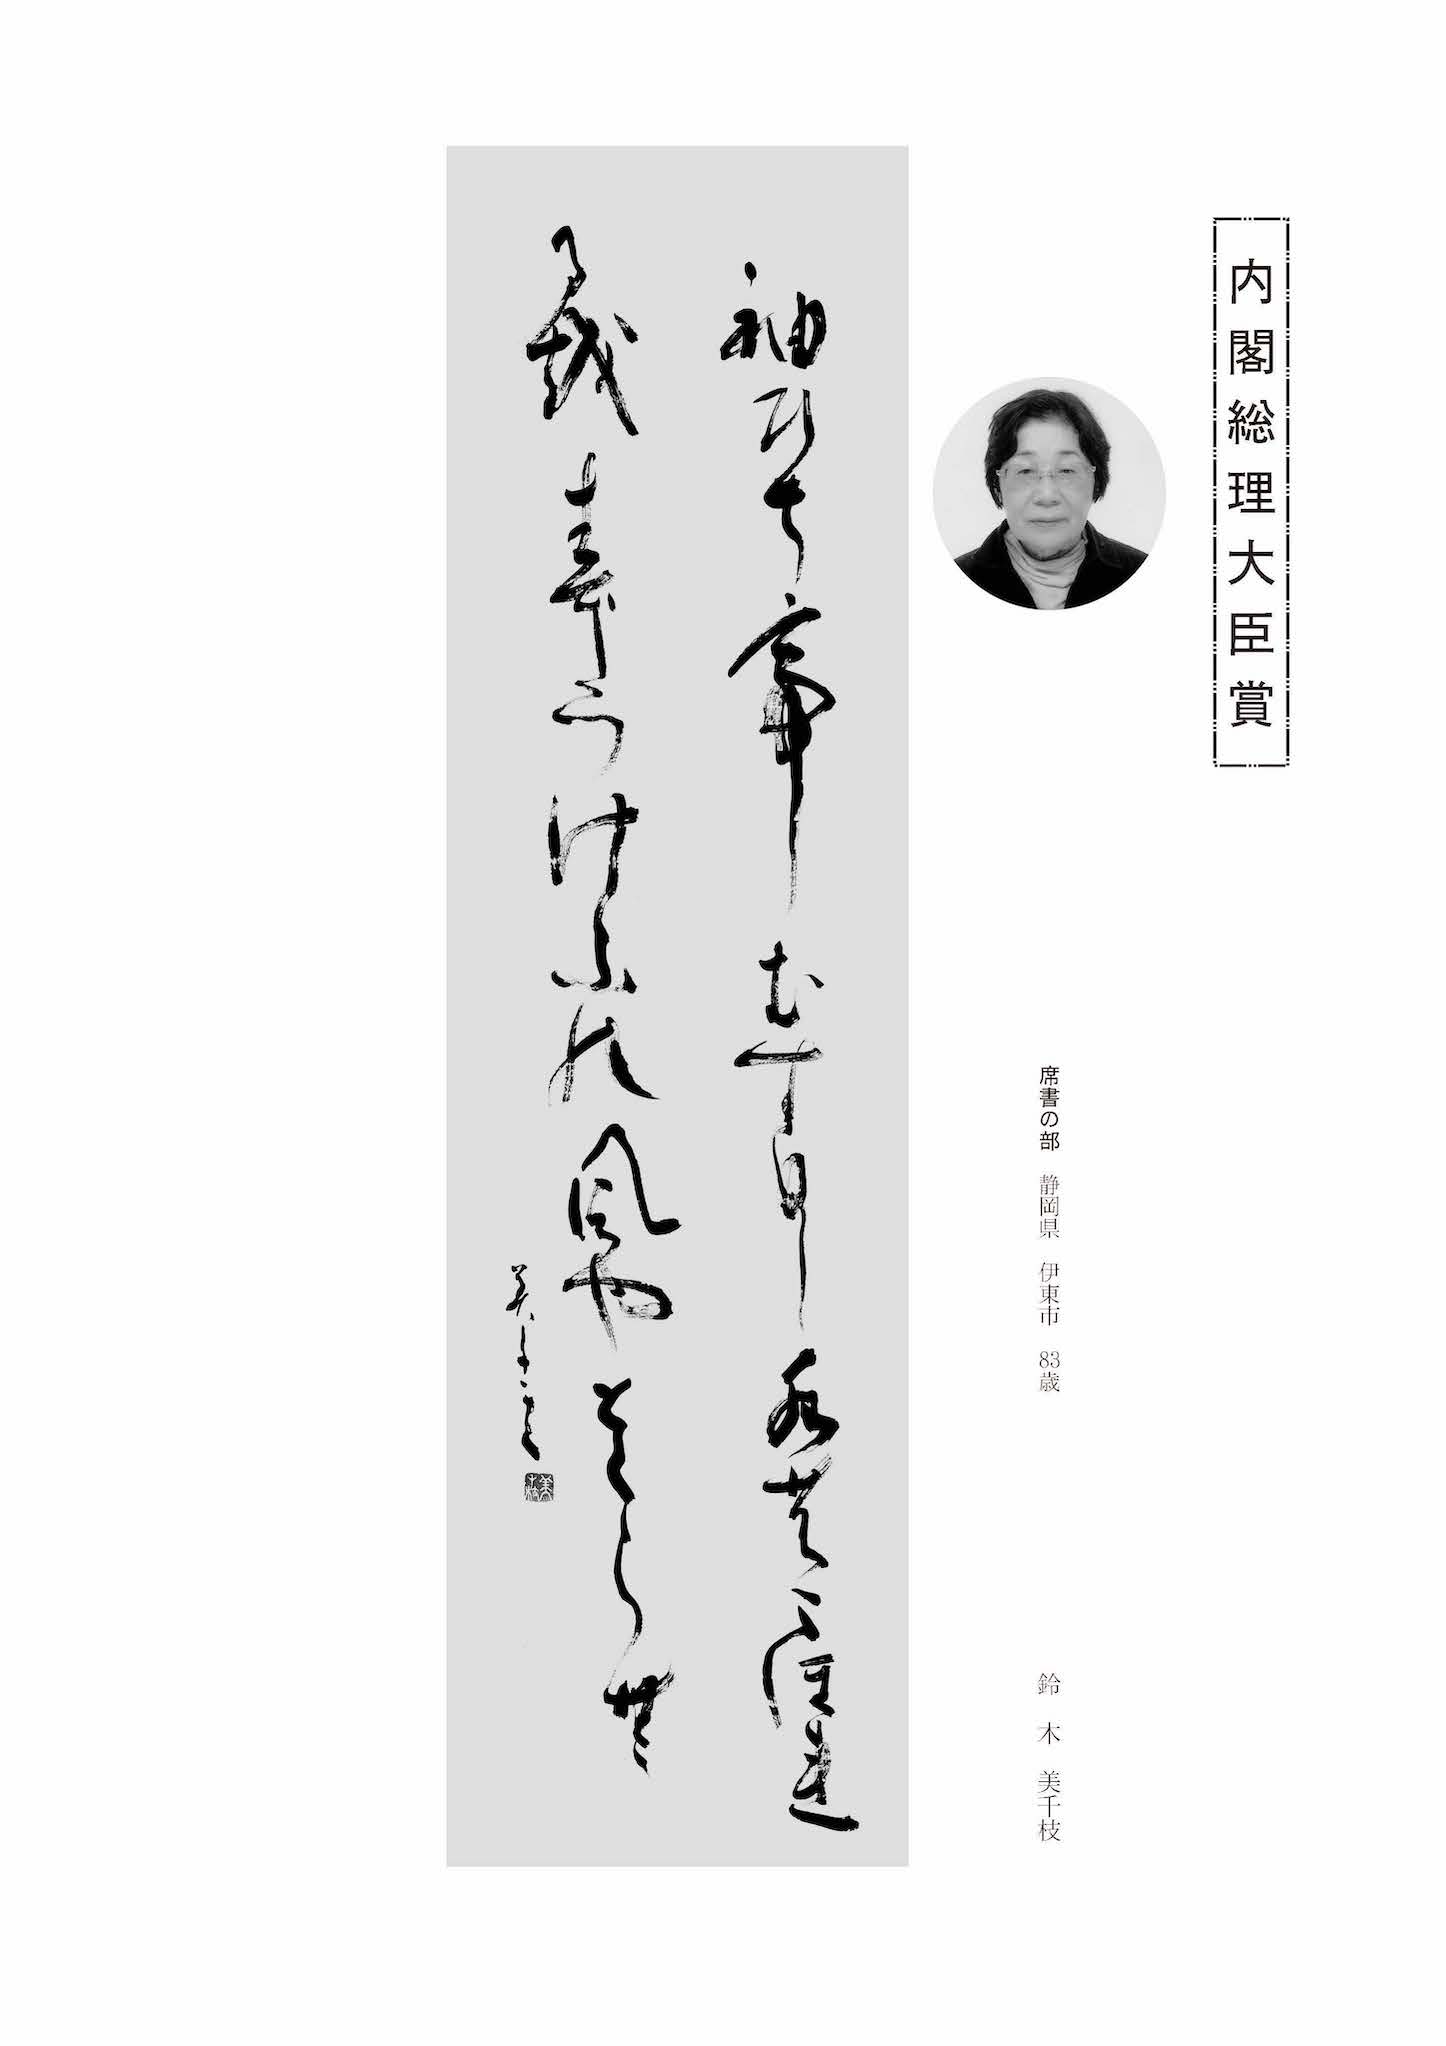 内閣総理大臣賞
席書の部 静岡県 伊東市 83歳 鈴木 美千枝
袖ひち亭むす日し水のこ保連
る越春立けふの風やとくら無
美千枝